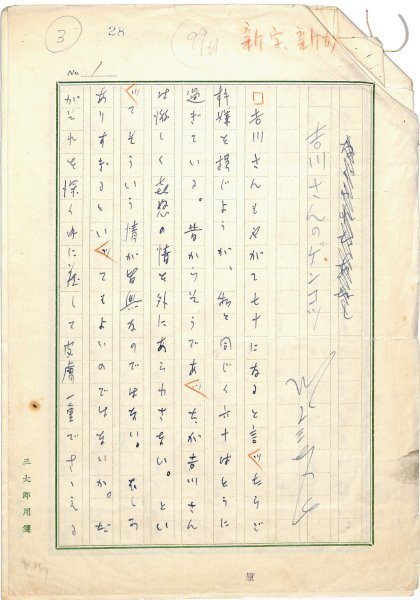 ③
28
新字、新か
No. 1
吉川さんのゲンコツ
吉川さんもやがて七十になると言ったらご
機嫌を損じようが、私と同じく六十はとうに
過ぎている。昔からそうであったが吉川さん
は激しく喜怒の情を外にあらわさない。とい
ってそういう情が皆無なのではない。むしろ
ありすぎるといってもよいのではないか。だ
がそれを深く中に蔵して皮膚一重でささえる
三太郎用箋
原